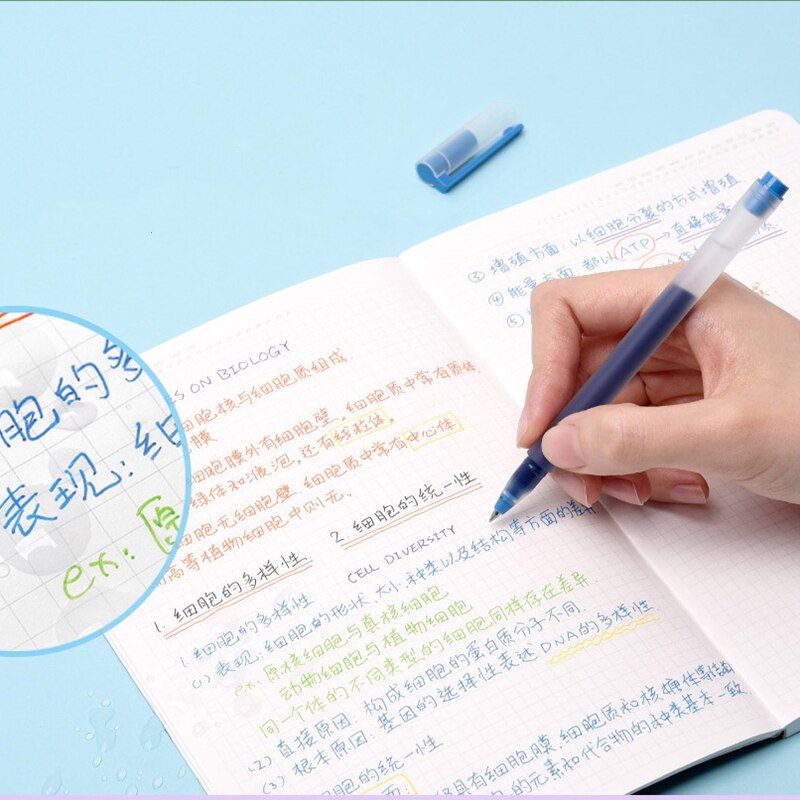 ES ON BIOLOGY
细胞核与细胞质组成.
膜
细胞膜外有细胞壁, 细胞质中常有质体
绿体和液泡, 还有线粒体,
细胞无细胞壁, 细胞质中常有中心体
高等植物细胞中则无.
1. 细胞的多样性
2. 细胞的统一性
CELL DIVERSITY
1. 细胞的多样性
(1) 表现: 细胞的形状、大小、种类以及结构等方面的差异
ex: 原核细胞与真核细胞
动物细胞与植物细胞
同一个体的不同类型的细胞同样存在差异.
(2) 直接原因: 构成细胞的蛋白质分子不同.
(3) 根本原因: 基因的选择性表达 DNA的多样性
细胞的统一性
具有细胞膜、细胞质和核
的元素和化合物的种类基本一致
③ 增殖方面: 以细胞分裂的方式增殖
④ 能量方面: 都以ATP→直接能量
⑤
胞的多
表现: 细
ex: 原